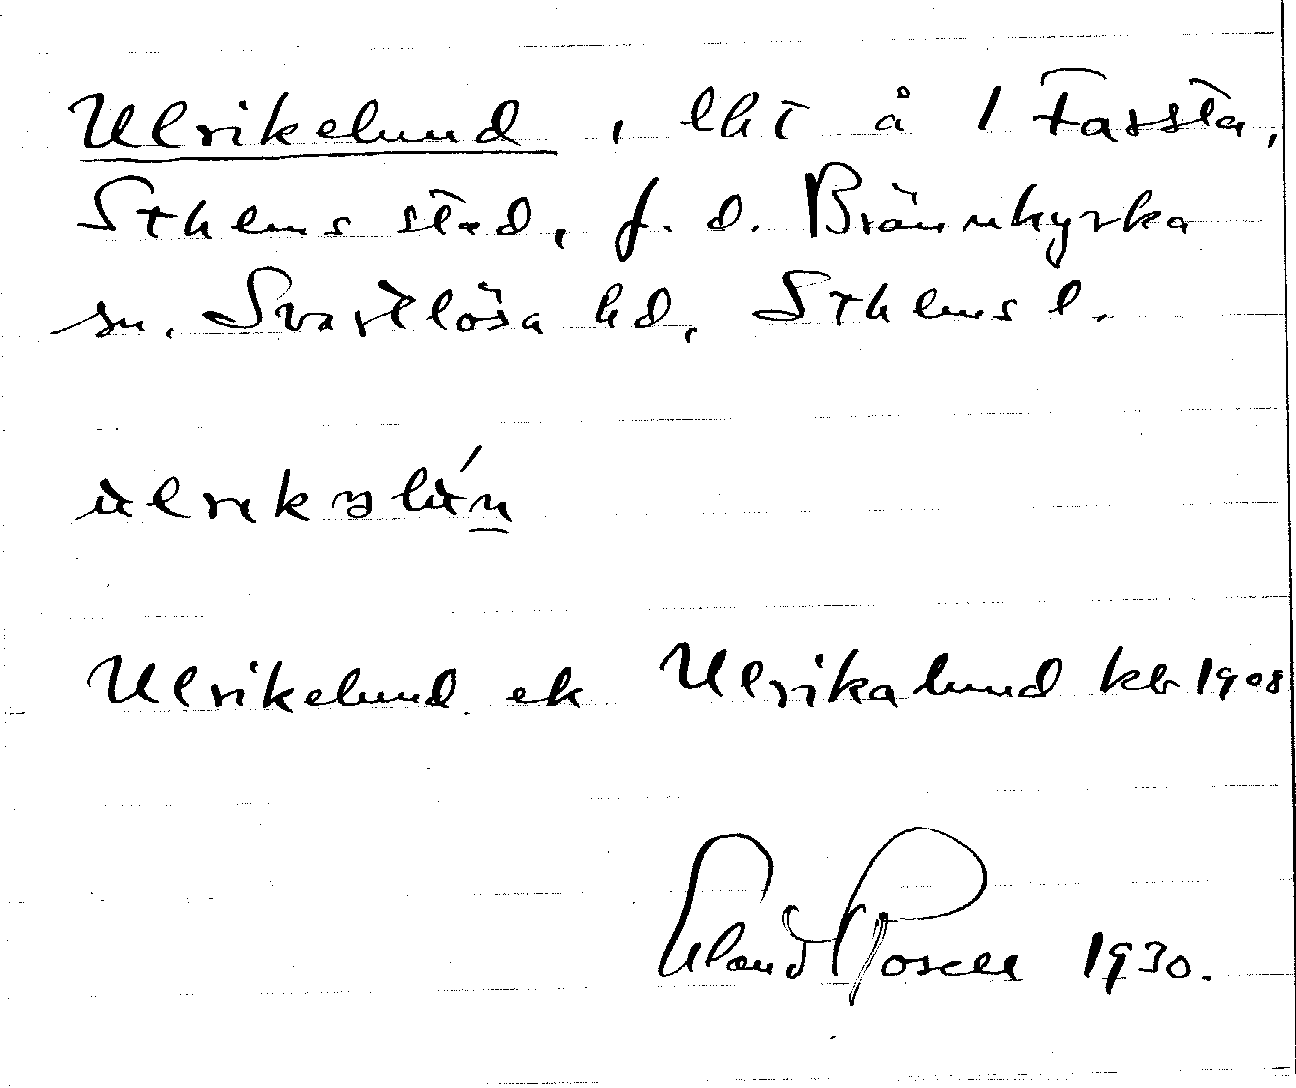 Ulrikelund, lht å 1 Farsta,
Sthlms stad, f. d. Brännkyrka
sn. Svartlösa hd, Sthlms l.
Ulrikelund ek Ulrikalund kb 1908
Erland Rosell 1930.